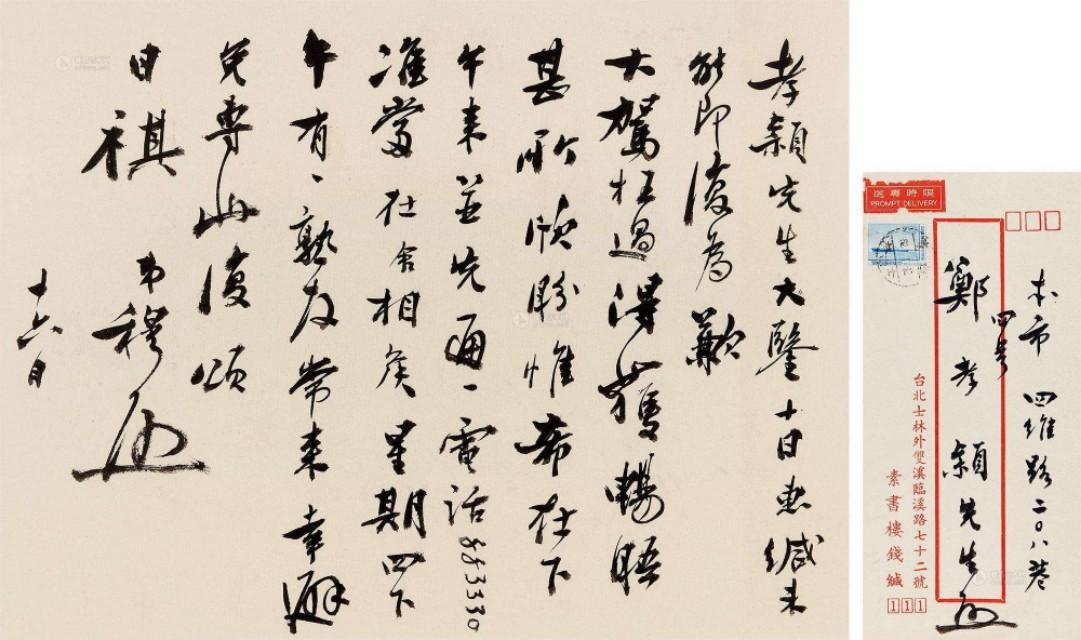 孝穎先生大鑒十日惠緘未
能即復為歉
大駕枉過得獲暢晤
甚所欣盼惟希在下
午來並先通一電話883380
准當在舍相候星期四下
午有一熟友常來幸避
免專此復頌
日祺 弟穆
十六日
限時專送
PROMPT DELIVERY
本市 四維路二〇八巷
四号
鄭孝穎先生
台北士林外雙溪臨溪路七十二號
素書樓錢緘
111